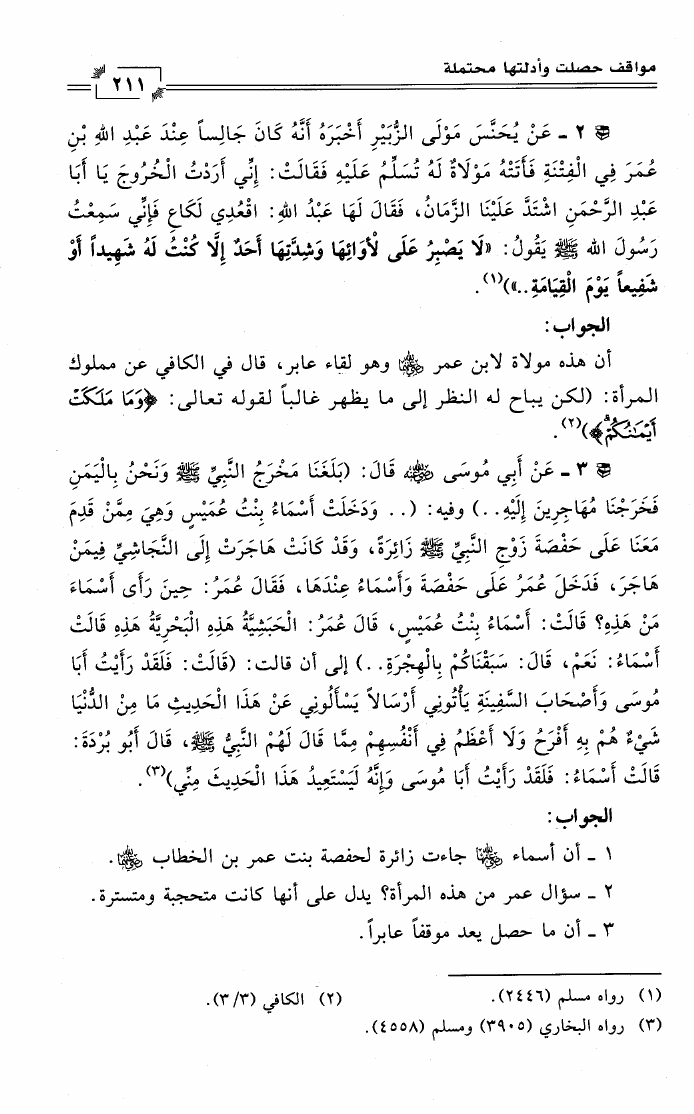 مواقف حصلت وأدلتها محتملة
٢١١
٢ ـ عَنْ يُحَنَّسَ مَوْلَى الزُّبَيْرِ أَخْبَرَهُ أَنَّهُ كَانَ جَالِساً عِنْدَ عَبْدِ اللهِ بْنِ
عُمَرَ فِي الْفِتْنَةِ فَأَتَتْهُ مَوْلَاةٌ لَهُ تُسَلِّمُ عَلَيْهِ فَقَالَتْ: إِنِّي أَرَدْتُ الْخُرُوجَ يَا أَبَا
عَبْدِ الرَّحْمَنِ اشْتَدَّ عَلَيْنَا الزَّمَانُ، فَقَالَ لَهَا عَبْدُ اللهِ: اقْعُدِي لَكَاعِ فَإِنِّي سَمِعْتُ
رَسُولَ اللهِ ﷺ يَقُولُ: «لَا يَصْبِرُ عَلَى لَأْوَائِهَا وَشِدَّتِهَا أَحَدٌ إِلَّا كُنْتُ لَهُ شَهِيداً أَوْ
شَفِيعاً يَوْمَ الْقِيَامَةِ..»)(١).
الجواب:
أن هذه مولاة لابن عمر رضي الله عنهما وهو لقاء عابر، قال في الكافي عن مملوك
المرأة: (لكن يباح له النظر إلى ما يظهر غالباً لقوله تعالى: ﴿وَمَا مَلَكَتْ
أَيْمَـٰنُكُمْ﴾)(٢).
٣ ـ عَنْ أَبِي مُوسَى رضي الله عنه قَالَ: (بَلَغَنَا مَخْرَجُ النَّبِيِّ ﷺ وَنَحْنُ بِالْيَمَنِ
فَخَرَجْنَا مُهَاجِرِينَ إِلَيْهِ..) وفيه: (.. وَدَخَلَتْ أَسْمَاءُ بِنْتُ عُمَيْسٍ وَهِيَ مِمَّنْ قَدِمَ
مَعَنَا عَلَى حَفْصَةَ زَوْجِ النَّبِيِّ ﷺ زَائِرَةً، وَقَدْ كَانَتْ هَاجَرَتْ إِلَى النَّجَاشِيِّ فِيمَنْ
هَاجَرَ، فَدَخَلَ عُمَرُ عَلَى حَفْصَةَ وَأَسْمَاءُ عِنْدَهَا، فَقَالَ عُمَرُ: حِينَ رَأَى أَسْمَاءَ
مَنْ هَذِهِ؟ قَالَتْ: أَسْمَاءُ بِنْتُ عُمَيْسٍ، قَالَ عُمَرُ: الْحَبَشِيَّةُ هَذِهِ الْبَحْرِيَّةُ هَذِهِ قَالَتْ
أَسْمَاءُ: نَعَمْ، قَالَ: سَبَقْنَاكُمْ بِالْهِجْرَةِ..) إلى أن قالت: (قَالَتْ: فَلَقَدْ رَأَيْتُ أَبَا
مُوسَى وَأَصْحَابَ السَّفِينَةِ يَأْتُونِي أَرْسَالاً يَسْأَلُونِي عَنْ هَذَا الْحَدِيثِ مَا مِنْ الدُّنْيَا
شَيْءٌ هُمْ بِهِ أَفْرَحُ وَلَا أَعْظَمُ فِي أَنْفُسِهِمْ مِمَّا قَالَ لَهُمْ النَّبِيُّ ﷺ، قَالَ أَبُو بُرْدَةَ:
قَالَتْ أَسْمَاءُ: فَلَقَدْ رَأَيْتُ أَبَا مُوسَى وَإِنَّهُ لَيَسْتَعِيدُ هَذَا الْحَدِيثَ مِنِّي)(٣).
الجواب:
١ ـ أن أسماء رضي الله عنها جاءت زائرة لحفصة بنت عمر بن الخطاب رضي الله عنهما.
٢ ـ سؤال عمر من هذه المرأة؟ يدل على أنها كانت متحجبة ومتسترة.
٣ ـ أن ما حصل يعد موقفاً عابراً.
(١) رواه مسلم (٢٤٤٦). (٢) الكافي (٣/٣).
(٣) رواه البخاري (٣٩٠٥) ومسلم (٤٥٥٨).